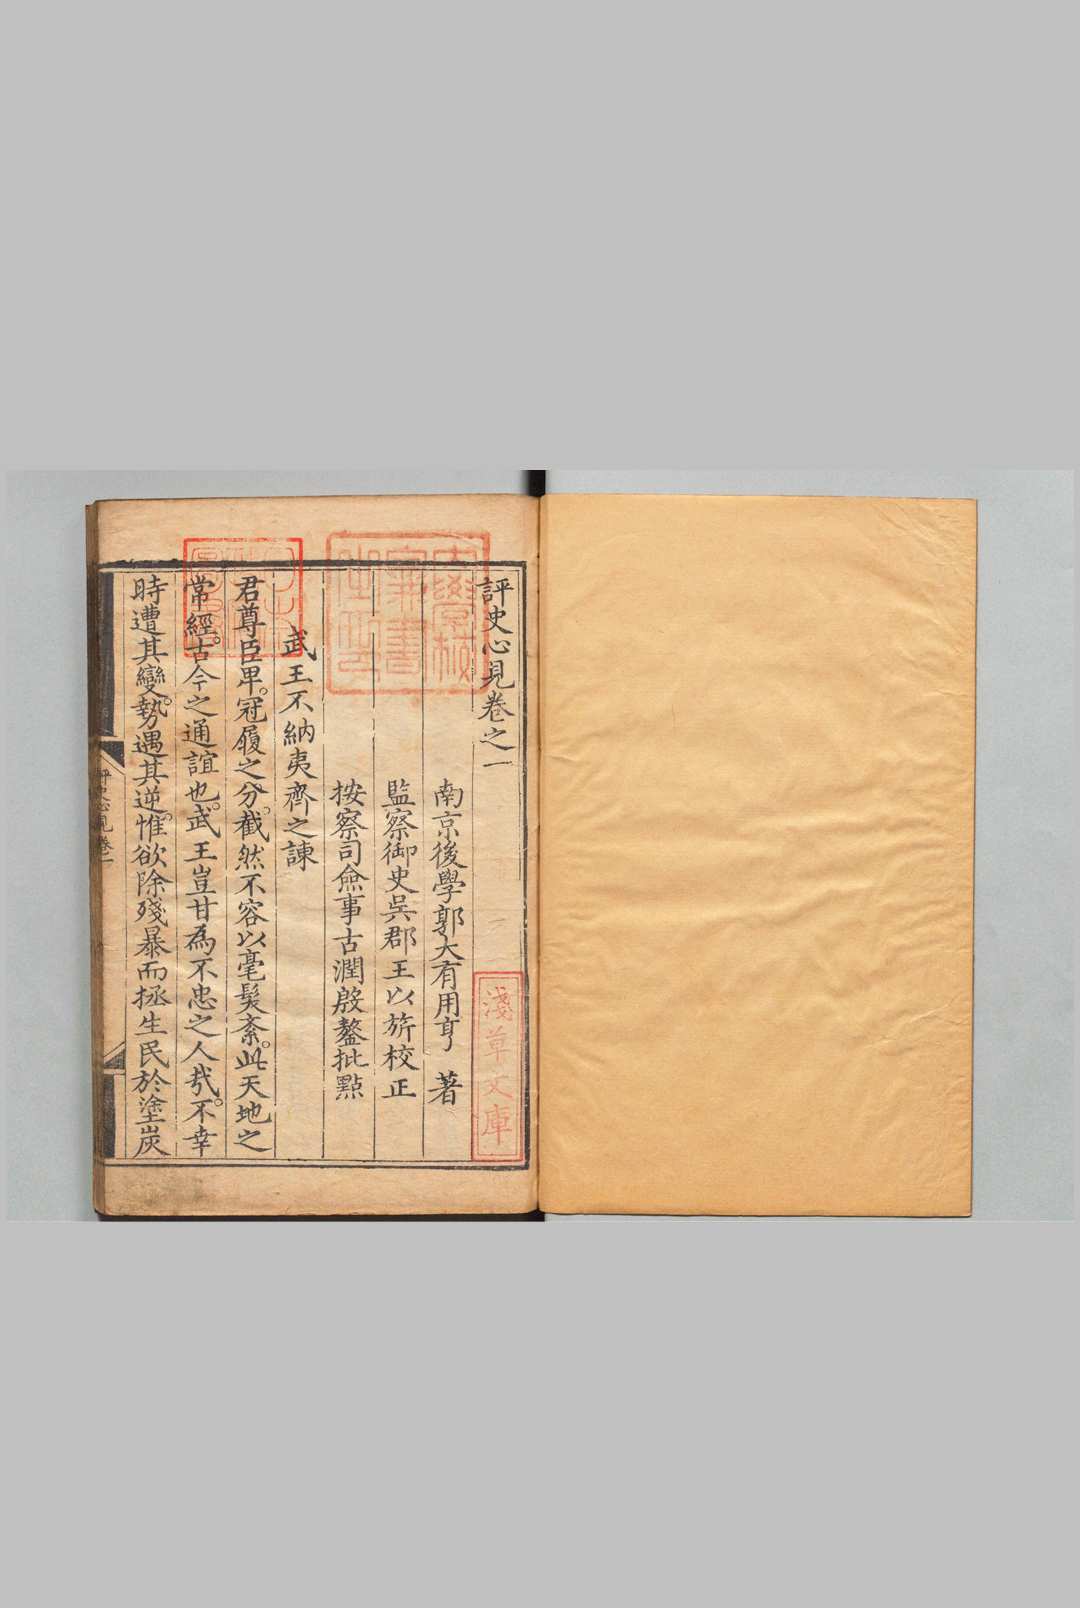 評史心見卷之一
南京後學郭大有用亨 著
監察御史吳郡王以旂校正
按察司僉事古潤殷鏊批點
武王不納夷齊之諫
君尊臣卑。冠履之分。截然不容以毫髮紊。此天地之
常經。古今之通誼也。武王豈甘為不忠之人㢤。不幸
時遭其變。勢遇其逆。惟欲除殘暴而拯生民於塗炭
評史心見卷一
淺草文庫